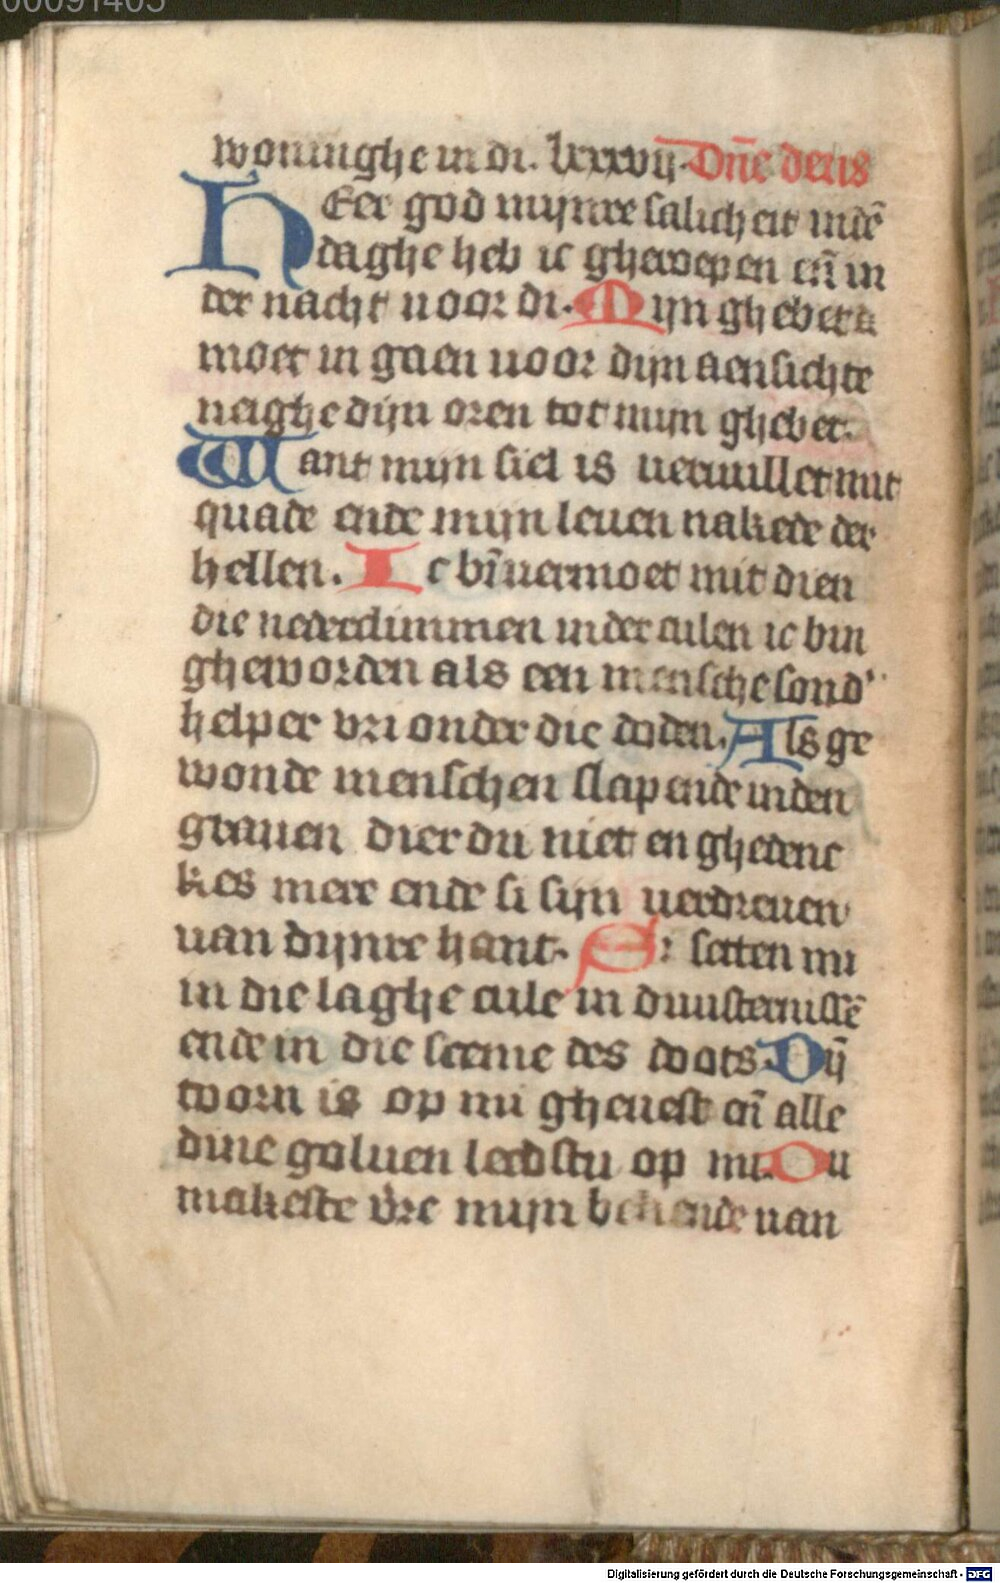 00091405
woninghe in di. lxxxvij. Dñe deus
HEer god mijnre salicheit indē
daghe heb ic gheroepen eñ in
der nacht uoor di. Mijn ghebet
moet in gaen uoor dijn aensichte
neighe dijn oren tot mijn ghebet.
Want mijn siel is ueruullet mit
quade ende mijn leuen nakede der
hellen. Ic bī uermoet mit dien
die nederclimmen inder culen ic bin
gheworden als een mensche sond'
helper vri onder die doden. Als ge
wonde menschen slapende inden
grauen dier du niet en ghedenc
kes mere ende si sijn uerdreuen
uan dijnre hant. Si setten mi
in die laghe cule in duusternissē
ende in die sceme des doots. Dij
toorn is op mi gheuest eñ alle
dine goluen leedstu op mi. Du
makeste v̄re mijn bekende uan
Digitalisierung gefördert durch die Deutsche Forschungsgemeinschaft - DFG